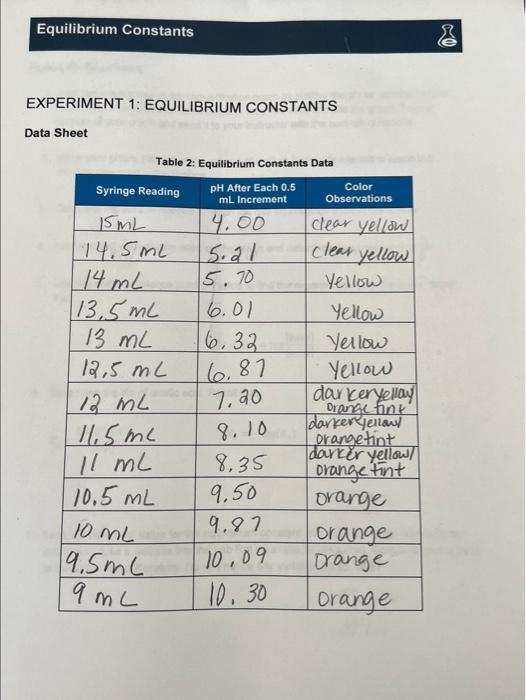 Equilibrium Constants
EXPERIMENT 1: EQUILIBRIUM CONSTANTS
Data Sheet
Table 2: Equilibrium Constants Data
Syringe Reading pH After Each 0.5 mL Increment Color Observations
15mL 4.00 clear yellow
14.5mL 5.21 clear yellow
14 mL 5.70 Yellow
13.5mL 6.01 Yellow
13 mL 6.32 Yellow
12.5 mL 6.87 Yellow
12 mL 7.20 darker yellow/ orange tint
11.5mL 8.10 darker yellow/ orange tint
11 mL 8.35 darker yellow/ orange tint
10.5 mL 9.50 orange
10 mL 9.87 orange
9.5mL 10.09 orange
9 mL 10.30 orange